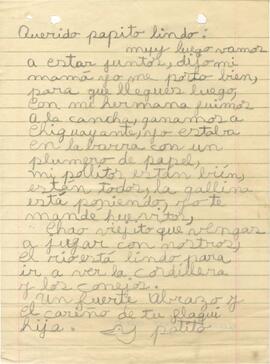 Querido papito lindo:
muy luego vamos
a estar juntos, dijo mi
mamá yo me porto bien,
para que llegues luego,
con mi hermana fuimos
a la cancha, ganamos a
Chiguayante, yo estaba
en la barra con un
plumero de papel,
mi pollitos están bién,
están todos, la gallina
está poniendo, yo te
mande huevitos,
Chao viejito que vengas
a jugar con nostros,
el rio está lindo para
ir, a ver la cordillera
y los conejos.
Un fuerte abrazo y
el cariño de tu flaqui
hija.